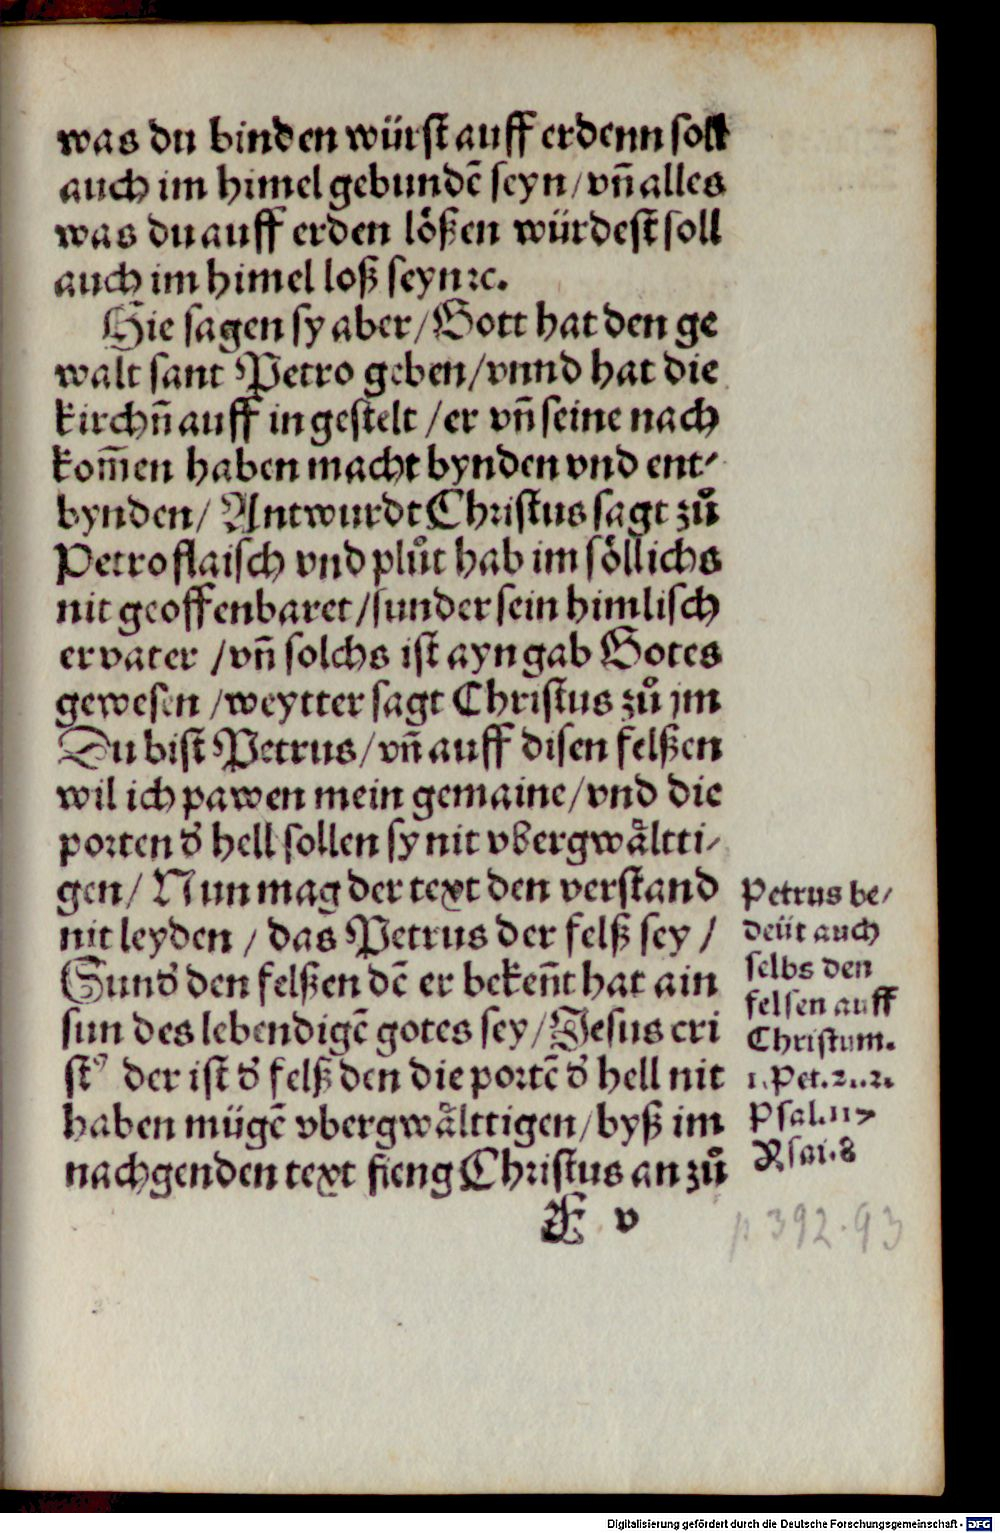 was du binden würst auff erdenn soll
auch im himel gebundē seyn/vñ alles
was du auff erden lößen würdest soll
auch im himel loß seyn ꝛc.
Hie sagen sy aber/Gott hat den ge
walt sant Petro geben/vnnd hat die
kirchñ auff in gestelt /er vñ seine nach
kom̄en haben macht bynden vnd ent⸗
bynden/ Antwurdt Christus sagt zů
Petro flaisch vnd plůt hab im söllichs
nit geoffenbaret/sunder sein himlisch
er vater /vñ solchs ist ayn gab Gotes
gewesen /weytter sagt Christus zů jm
Du bist Petrus/vñ auff disen felßen
wil ich pawen mein gemaine/vnd die
porten d' hell sollen sy nit vbergwaͤltti⸗
gen/ Nun mag der text den verstand
nit leyden / das Petrus der felß sey /
Sund' den felßen dē er bekeñt hat ain
sun des lebendigē gotes sey/Jesus cri
stꝰ der ist d' felß den die portē d' hell nit
haben mügē vbergwaͤlttigen/byß im
nachgenden text fieng Christus an zů
Petrus be/
deüt auch
selbs den
felsen auff
Christum.
1.Pet.2..2.
Psal.117
Esai.8
E v
p 392.93
Digitalisierung gefördert durch die Deutsche Forschungsgemeinschaft - DFG